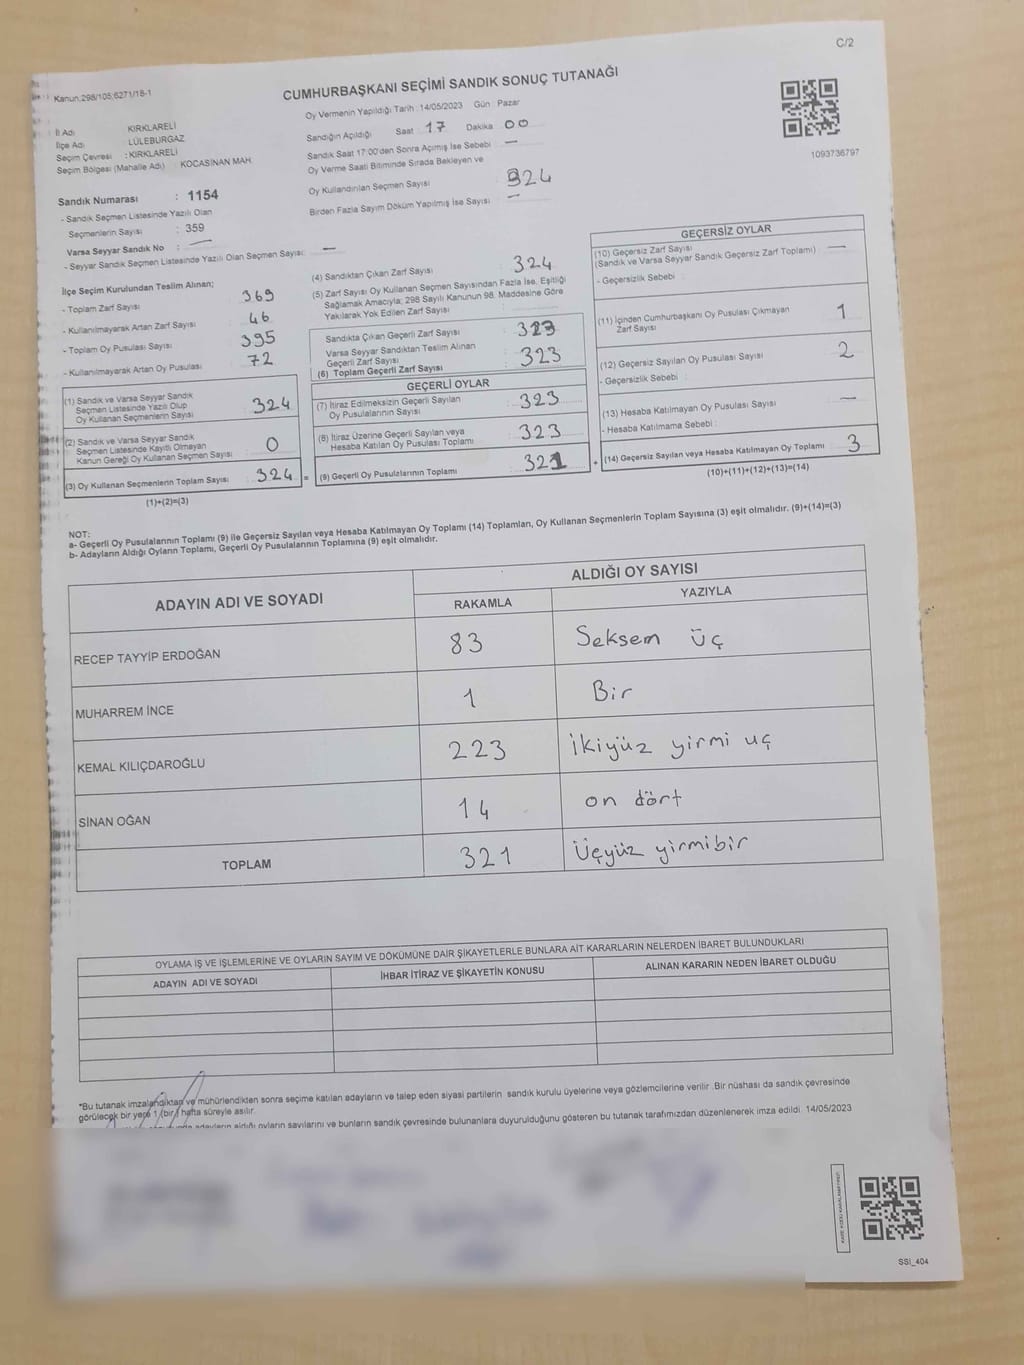 C/2
Kanun:298/105;6271/18-1
CUMHURBAŞKANI SEÇİMİ SANDIK SONUÇ TUTANAĞI
Oy Vermenin Yapıldığı Tarih : 14/05/2023 Gün : Pazar
İl Adı KIRKLARELİ
İlçe Adı LÜLEBURGAZ
Seçim Çevresi : KIRKLARELİ
Seçim Bölgesi (Mahalle Adı) : KOCASİNAN MAH.
Sandığın Açıldığı Saat 17 Dakika 00
Sandık Saat 17:00'den Sonra Açımış İse Sebebi —
Oy Verme Saati Bitiminde Sırada Bekleyen ve
Oy Kullandırılan Seçmen Sayısı : 324
Birden Fazla Sayım Döküm Yapılmış İse Sayısı —
1093736797
Sandık Numarası : 1154
- Sandık Seçmen Listesinde Yazılı Olan
Seçmenlerin Sayısı : 359
Varsa Seyyar Sandık No : —
- Seyyar Sandık Seçmen Listesinde Yazılı Olan Seçmen Sayısı: —
İlçe Seçim Kurulundan Teslim Alınan;
- Toplam Zarf Sayısı 369
- Kullanılmayarak Artan Zarf Sayısı 46
- Toplam Oy Pusulası Sayısı 395
- Kullanılmayarak Artan Oy Pusulası 72
(1) Sandık ve Varsa Seyyar Sandık
Seçmen Listesinde Yazılı Olup
Oy Kullanan Seçmenlerin Sayısı 324
(2) Sandık ve Varsa Seyyar Sandık
Seçmen Listesinde Kayıtlı Olmayan
Kanun Gereği Oy Kullanan Seçmen Sayısı 0
(3) Oy Kullanan Seçmenlerin Toplam Sayısı 324 =
(1)+(2)=(3)
(4) Sandıktan Çıkan Zarf Sayısı 324
(5) Zarf Sayısı Oy Kullanan Seçmen Sayısından Fazla İse, Eşitliği
Sağlamak Amacıyla; 298 Sayılı Kanunun 98. Maddesine Göre
Yakılarak Yok Edilen Zarf Sayısı
Sandıkta Çıkan Geçerli Zarf Sayısı 323
Varsa Seyyar Sandıktan Teslim Alınan
Geçerli Zarf Sayısı
(6) Toplam Geçerli Zarf Sayısı 323
GEÇERLİ OYLAR
(7) İtiraz Edilmeksizin Geçerli Sayılan
Oy Pusulalarının Sayısı 323
(8) İtiraz Üzerine Geçerli Sayılan veya
Hesaba Katılan Oy Pusulası Toplamı 323
(9) Geçerli Oy Pusulalarının Toplamı 321 +
GEÇERSİZ OYLAR
(10) Geçersiz Zarf Sayısı —
(Sandık ve Varsa Seyyar Sandık Geçersiz Zarf Toplamı)
- Geçersizlik Sebebi :
(11) İçinden Cumhurbaşkanı Oy Pusulası Çıkmayan
Zarf Sayısı 1
(12) Geçersiz Sayılan Oy Pusulası Sayısı 2
- Geçersizlik Sebebi :
(13) Hesaba Katılmayan Oy Pusulası Sayısı —
- Hesaba Katılmama Sebebi :
(14) Geçersiz Sayılan veya Hesaba Katılmayan Oy Toplamı 3
(10)+(11)+(12)+(13)=(14)
NOT:
a- Geçerli Oy Pusulalarının Toplamı (9) ile Geçersiz Sayılan veya Hesaba Katılmayan Oy Toplamı (14) Toplamları, Oy Kullanan Seçmenlerin Toplam Sayısına (3) eşit olmalıdır. (9)+(14)=(3)
b- Adayların Aldığı Oyların Toplamı, Geçerli Oy Pusulalarının Toplamına (9) eşit olmalıdır.
ADAYIN ADI VE SOYADI ALDIĞI OY SAYISI
RAKAMLA YAZIYLA
RECEP TAYYİP ERDOĞAN 83 Seksem üç
MUHARREM İNCE 1 Bir
KEMAL KILIÇDAROĞLU 223 ikiyüz yirmi uç
SİNAN OĞAN 14 on dört
TOPLAM 321 Üçyüz yirmibir
OYLAMA İŞ VE İŞLEMLERİNE VE OYLARIN SAYIM VE DÖKÜMÜNE DAİR ŞİKAYETLERLE BUNLARA AİT KARARLARIN NELERDEN İBARET BULUNDUKLARI
ADAYIN ADI VE SOYADI İHBAR İTİRAZ VE ŞİKAYETİN KONUSU ALINAN KARARIN NEDEN İBARET OLDUĞU
*Bu tutanak imzalandıktan ve mühürlendikten sonra seçime katılan adayların ve talep eden siyasi partilerin sandık kurulu üyelerine veya gözlemcilerine verilir. Bir nüshası da sandık çevresinde
görülecek bir yere 1 (bir) hafta süreyle asılır.
adayların aldığı oyların sayılarını ve bunların sandık çevresinde bulunanlara duyurulduğunu gösteren bu tutanak tarafımızdan düzenlenerek imza edildi. 14/05/2023
SSI_404